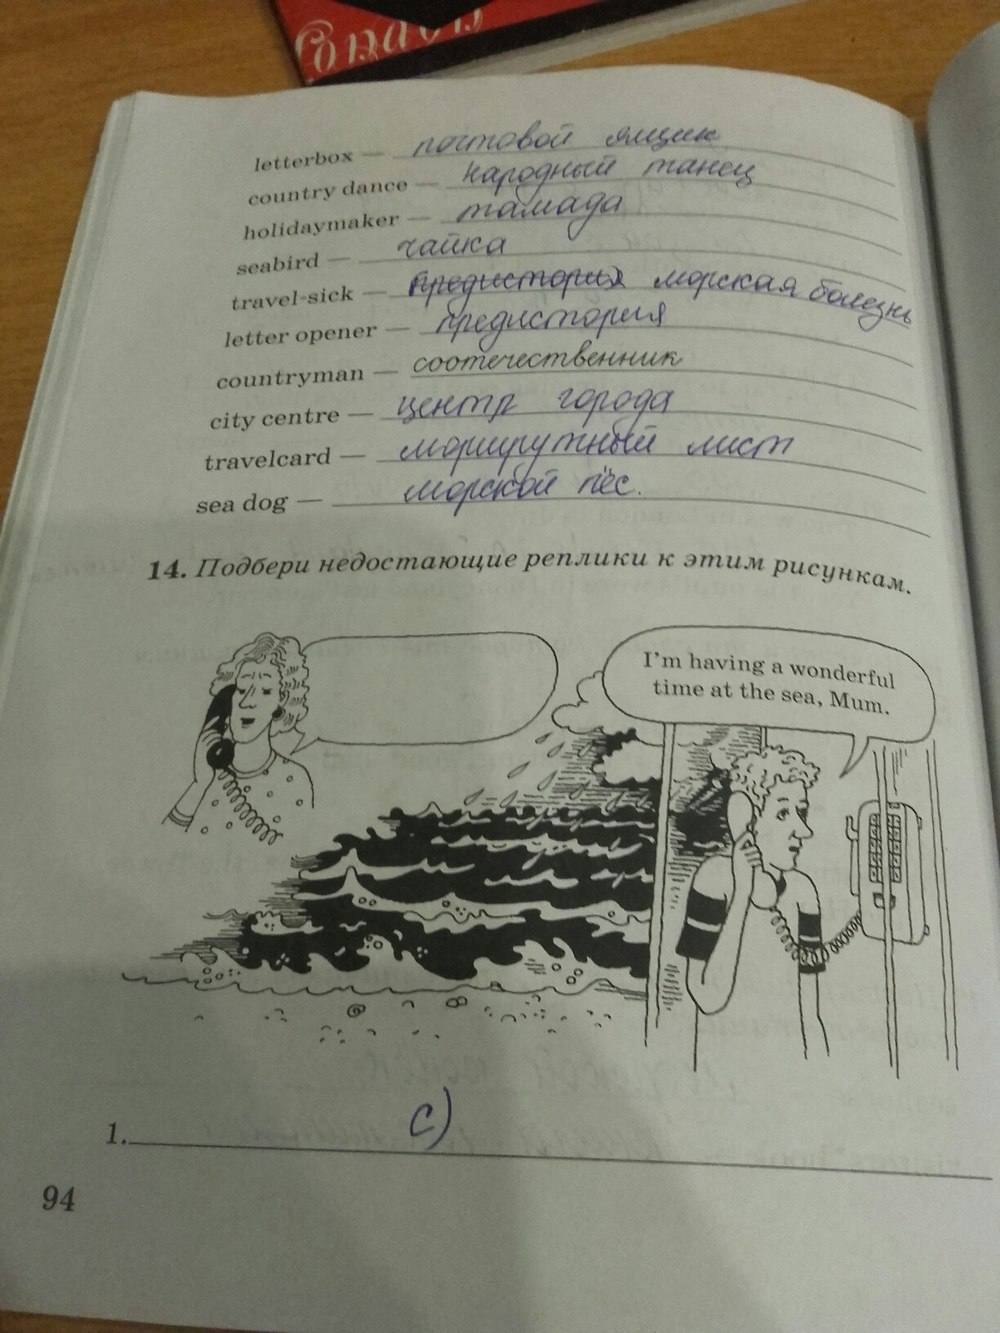 letterbox — почтовой ящик
country dance — народный танец
holidaymaker — тамада
seabird — чайка
travel-sick — предистория морская болезнь
letter opener — предистория
countryman — соотечественник
city centre — центр города
travelcard — маршрутный лист
sea dog — морской пёс.
14. Подбери недостающие реплики к этим рисункам.
I'm having a wonderful
time at the sea, Mum.
1. c)
94